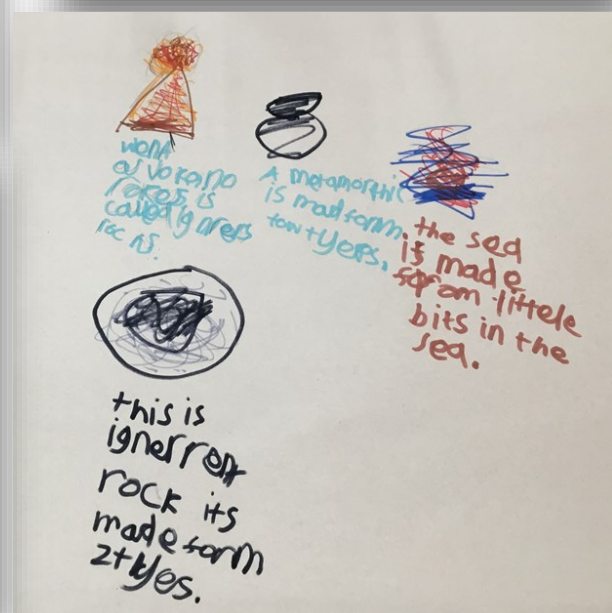 wenk
a volkano
rokes is
called igners
roc ns.
A metamorthic
is mad form.
tow tyers.
the sed
is made
from littele
bits in the
sea.
this is
ignerrent
rock its
made form
2 tyes.